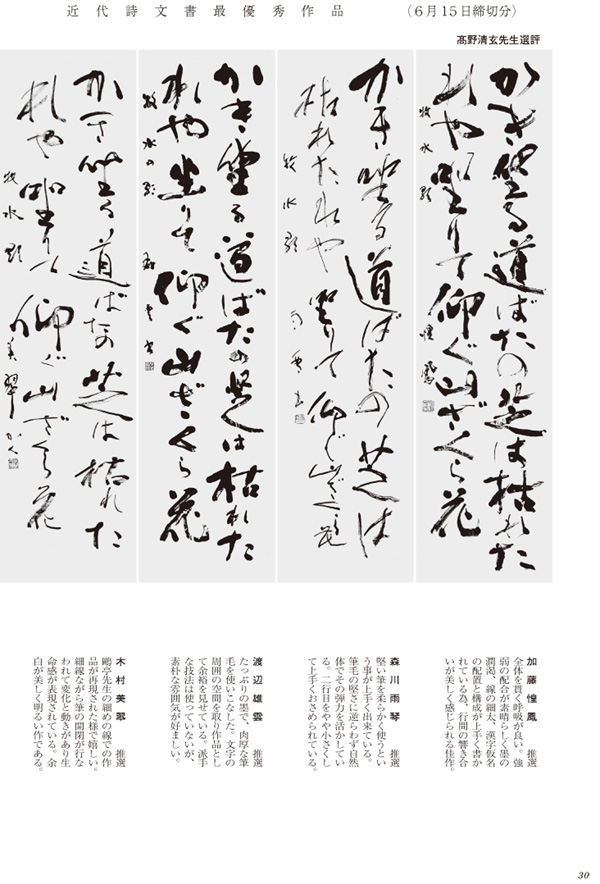 近代詩文書最優秀作品 （6月15日締切分）
髙野清玄先生選評
かき坐る道ばたの芝は枯れた
れや坐りて仰ぐ山ざくら花
牧水歌 惶鳳
かき坐る道ばたの芝は
枯れたれや坐りて仰ぐ山ざくら花
牧水歌 雨琴書
かき坐る道ばたの芝は枯れた
れや坐りて仰ぐ山ざくら花
牧水の歌 雄雲書
かき坐る道ばたの芝は枯れた
れや坐りて仰ぐ山ざくら花
牧水歌 美翠かく
加藤惶鳳 推選
全体を貫く呼吸が良い。強
弱の配合が素晴らしく墨の
潤渇、線の細太、漢字仮名
の配置と構成が上手く書か
れている為、行間の響き合
いが美しく感じられる佳作。
森川雨琴 推選
堅い筆を柔らかく使うとい
う事が上手く出来ている。
筆毛の堅さに逆らわず自然
体でその弾力を活かしてい
る。二行目をやや小さくし
て上手くおさめられている。
渡辺雄雲 推選
たっぷりの墨で、肉厚な筆
毛を使いこなした。文字の
周囲の空間を取り作品とし
て余裕を見せている。派手
な技法は使っていないが、
素朴な雰囲気が好ましい。
木村美翠 推選
鷗亭先生の細めの線での作
品が再現された様で嬉しい。
細線ながら筆の開閉が行な
われて変化と動きがあり生
命感が表現されている。余
白が美しく明るい作である。
30